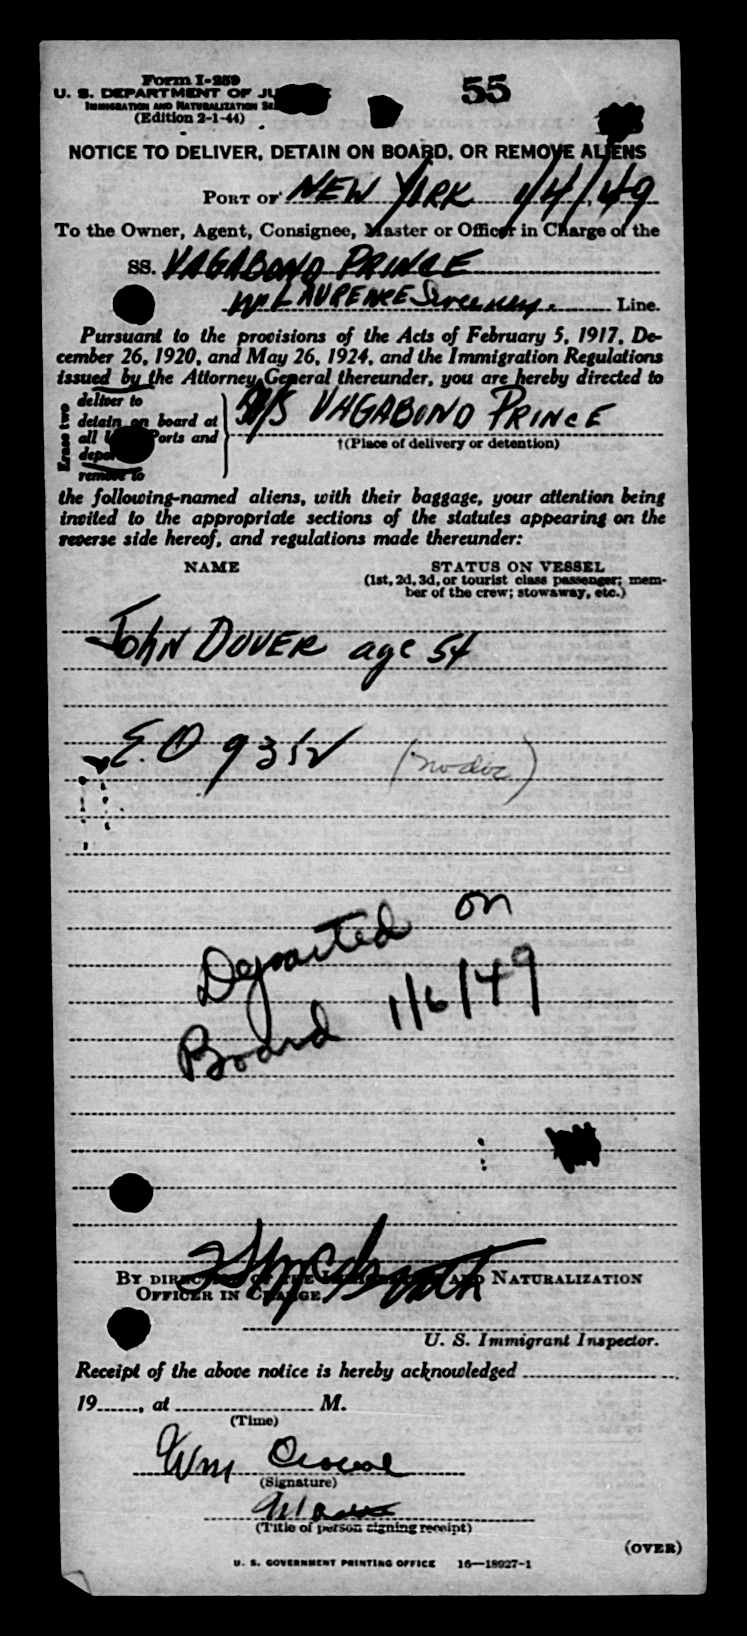 Form I-259
U. S. DEPARTMENT OF
IMMIGRATION AND NATURALIZATION
(Edition 2-1-44)
55
NOTICE TO DELIVER, DETAIN ON BOARD, OR REMOVE ALIENS
PORT OF NEW YORK 1/4/49
To the Owner, Agent, Consignee, Master or Officer in Charge of the
SS. VAGABOND PRINCE
LAURENCE Line.
Pursuant to the provisions of the Acts of February 5, 1917, De-
cember 26, 1920, and May 26, 1924, and the Immigration Regulations
issued by the Attorney General thereunder, you are hereby directed to
Erase two
deliver to
detain on board at
all Ports and
remove to
S/S VAGABOND PRINCE
†(Place of delivery or detention)
the following-named aliens, with their baggage, your attention being
invited to the appropriate sections of the statutes appearing on the
reverse side hereof, and regulations made thereunder:
NAME STATUS ON VESSEL
(1st, 2d, 3d, or tourist class passenger; mem-
ber of the crew; stowaway, etc.)
JOHN DOVER age 54
E.O 9352 (no doc)
Departed on
Board 1/6/49
BY DIRECTION OF THE IMMIGRATION AND NATURALIZATION
OFFICER IN CHARGE
U. S. Immigrant Inspector.
Receipt of the above notice is hereby acknowledged
19......, at M.
(Time)
Wm
(Signature)
(Title of person signing receipt)
(OVER)
U. S. GOVERNMENT PRINTING OFFICE 16—18027-1